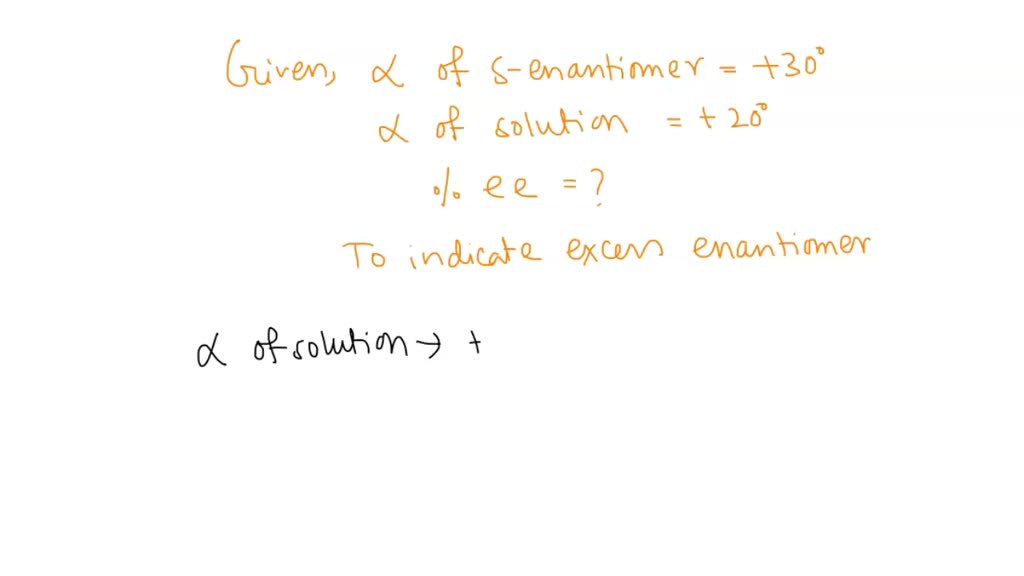 Given, α of s-enantiomer = +30°
α of solution = +20°
% ee = ?
To indicate excess enantiomer
α of solution → +